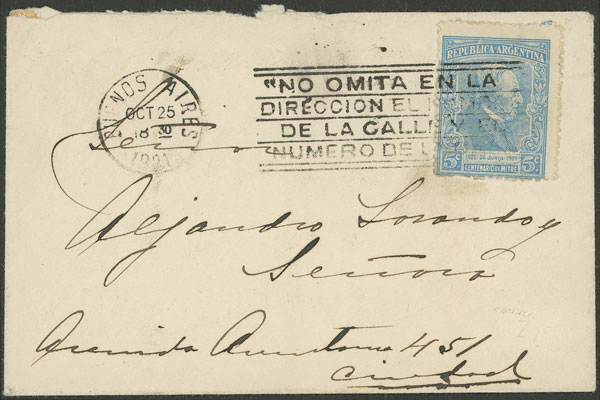 BUENOS AIRES
OCT 25
18
1921
"NO OMITA EN LA
DIRECCION EL
DE LA CALLE
NUMERO DE
REPUBLICA ARGENTINA
5c 1821 26 JUNIO 1921 5c
CENTENARIO DE MITRE
Señor
Alejandro y
Señora
Avenida 451
Ciudad